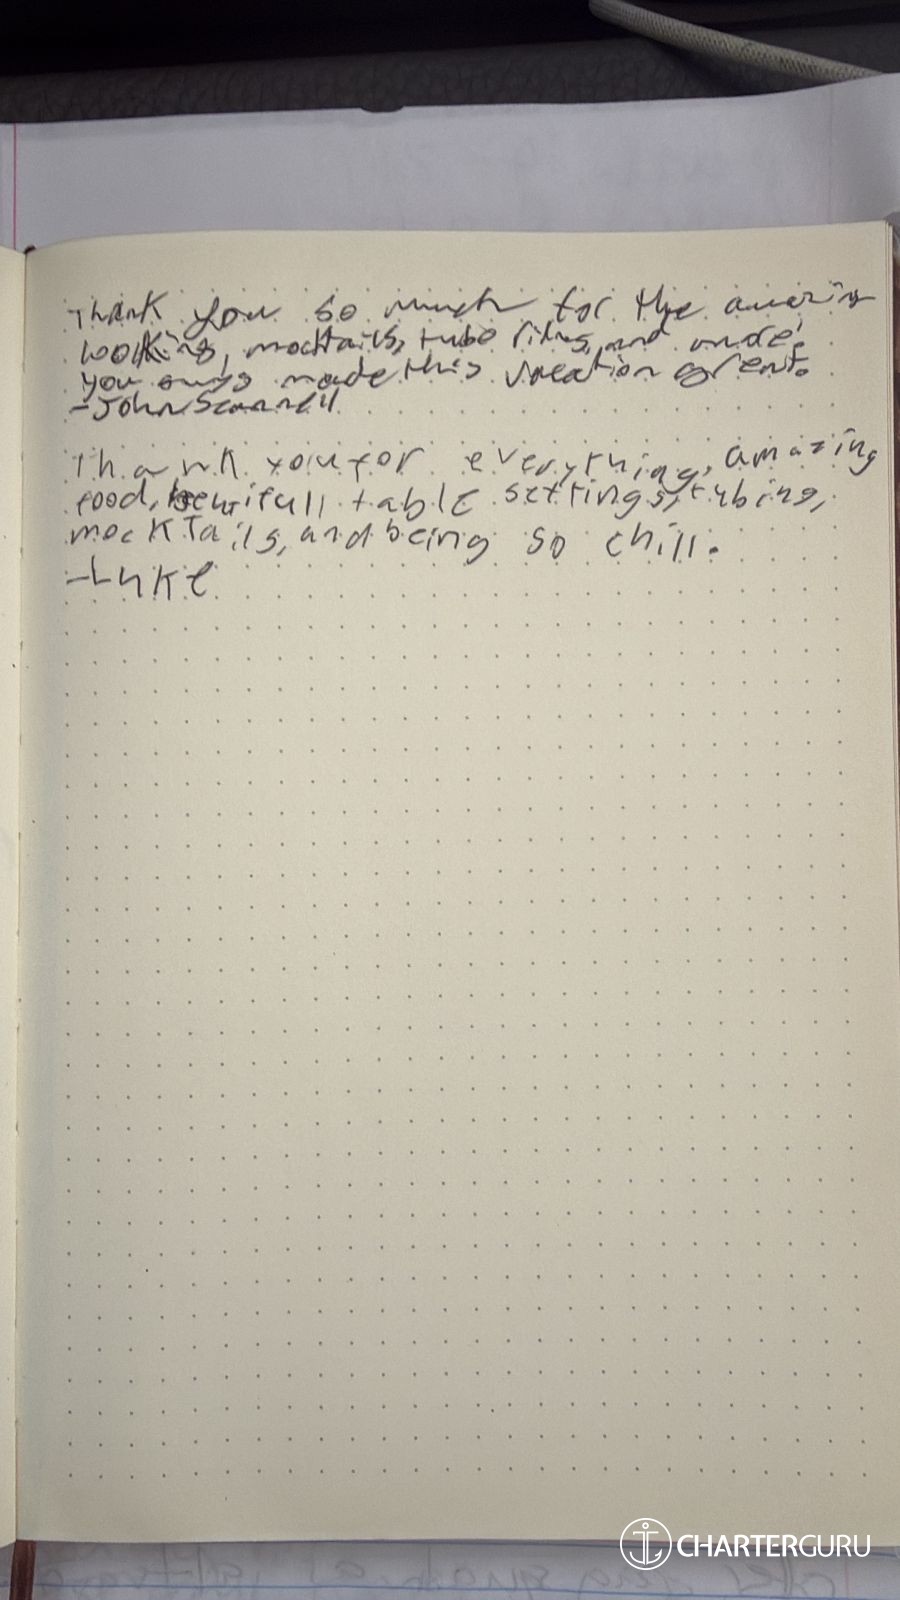 Thank you so much for the amazing
cooking, mocktails, tube rides, and
you guys made this vacation great.
-John
Thank you for everything, amazing
food, beutifull table settings, tubing,
mockTails, and being so chill.
-Luke
CHARTERGURU